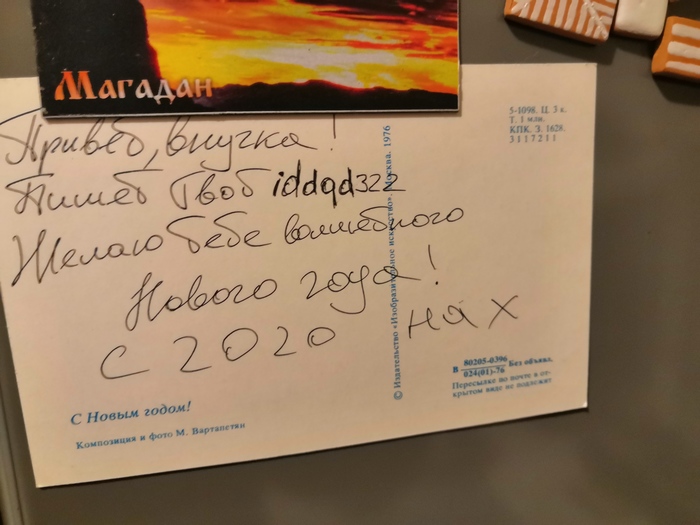 Магадан
Привет, внучка!
Пишет твоё iddqd322
Желаю тебе волшебного
Нового года!
С 2020 нах
5-1098. Ц. 3 к.
Т. 1 млн.
КПК. З. 1628.
3117211
© Издательство «Изобразительное искусство». Москва. 1976
В 80205-0396 Без объявл.
024(01)-76
Пересылке по почте в от-
крытом виде не подлежит
С Новым годом!
Композиция и фото М. Вартапетян